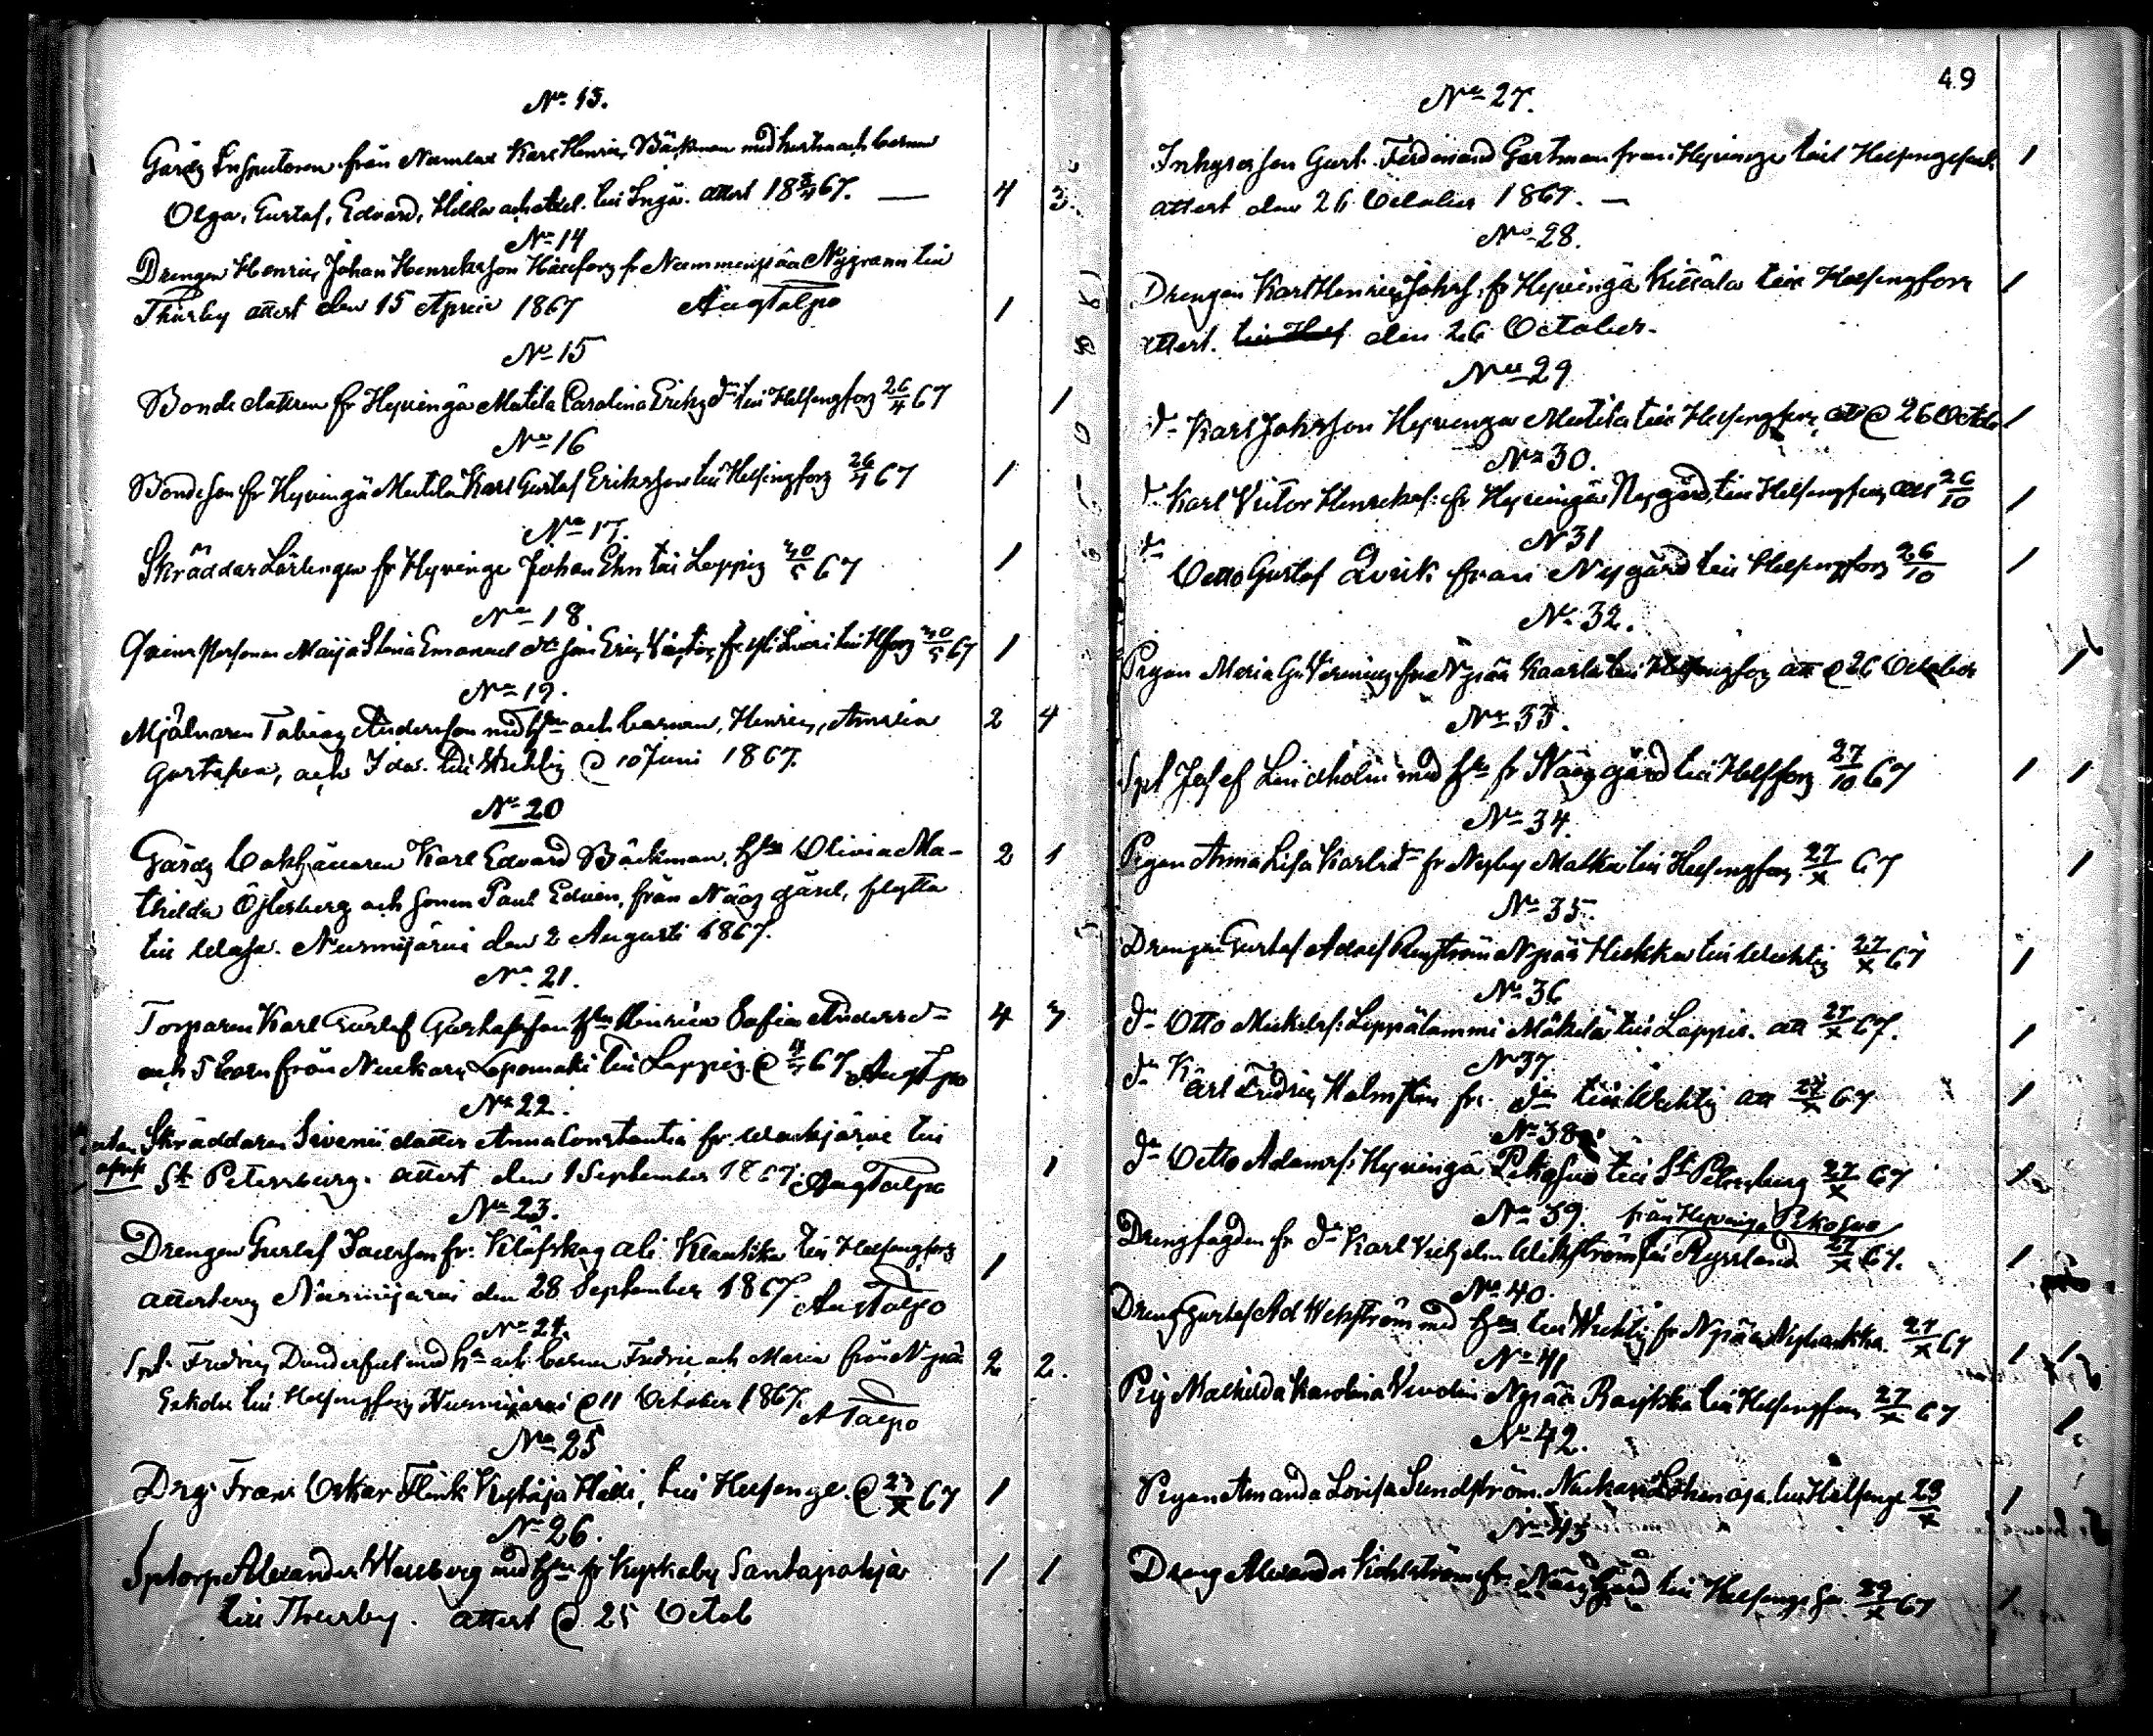 No 13.
Gårdz Inspectoren från Numlax Karl Henric Bäckman med hustru och barnen
Olga, Gustaf, Edvard, Hilda och Axel. till Ingå. attest 18 67. — 4 3.
No 14
Drengen Henric Johan Henricksson Häceforz fr Nummenpää Nygrann till
Thusby attest den 15 April 1867 AugTalpo 1
No 15
Bonde dattren fr Hyvingä Mutila Carolina Erikz dr till Helsingforz 26/4 67 1
No 16
Bondeson fr Hyvingä Mutila Karl Gustaf Eriksson till Helsingforz 26/4 67 1
No 17.
Skräddar Lärlingen fr Hyvinge Johan Ehn till Loppis 30/5 67 1
No 18
Qvins Personen Maija Stina Emanuel dr son Eric Victor fr till Hforz 30/5 67 1
No 19.
Mjölnaren Tobias Andersson med hu och barnen, Henric, Amalia 2 4
Gustafva, och Ida. till Wichtis @ 10 Juni 1867.
No 20
Gårdz Bokhållaren Karl Edvard Bäckman, hu Olivia Ma- 2 1
thilda Österberg och sonen Paul Edvin, från Nääs gård, flytta
till Wasa. Nurmijärvi den 2 Augusti 1867.
No 21.
Torparen Karl Gustaf Gustafsson hu Henrica Sofia Anders dr 4 3
och 5 barn från Nuckari Lepomäki till Loppis @ 67. AugTpo
No 22.
Skräddaren Sivenii datter Anna Constantia fr. Wackjärvi till
St Petersburg. attest den 1 September 1867. AugTalpo 1
No 23.
Drengen Gustaf Isacsson fr: Klöfskog ali Klautika till Helsingforz 1
attesteras Nurmijärvi den 28 September 1867. AugTalpo
No 24.
Spt. Fredric Dunderfelt med hu och barnen Fredric och Maria från Npää 2 2.
Eskola till Helsingforz Nurmijärvi @ 11 October 1867. ATalpo
No 25
Drg. Frans Oskar Flink Kytäjä Hälli, till Helsinge. @ 23/X 67 1
No 26.
Sptorp Alexander Wessberg med hu fr Kyrkoby Santapohja 1 1
till Thusby. attest @ 25 Octob
49
No 27.
Inhyses son Gust. Ferdinand Gertman från Hyvinge till Helsingfors. 1
attest den 26 October 1867. —
No 28.
Drengen Karl Henric Johs s. fr Hyvingä Kittälä till Helsingforz 1
attest. till Hel den 26 October.
No 29
dr Karl Johsson Hyvinga Mutila till Helsingforz att @ 26 Octob 1
No 30.
dr Karl Victor Henricks s: fr Hyvingä Nygård till Helsingforz att 26/10 1
N 31
dr Otto Gustaf Qvick från Nygård till Helsingforz 26/10 1
No 32.
Pigan Maria G. Verning från Npää Kaarla till Helsingforz att @ 26 October 1
No 33.
Spt Josef Lindholm med hu fr Nääs gård till Helsforz 27/10 67 1 1
No 34.
Pigan Anna Lisa Karls dr fr Nyby Matka till Helsingforz 27/X 67 1
No 35.
Drengen Gustaf Adolf Ruström Npää Hukka till Wichtis 27/X 67 1
No 36
dr Otto Mickels s: Leppälammi Mäkelä till Loppis. att 27/X 67. 1
No 37
dr Karl Fredric Holmsten fr. dr till Wichtis att 27/X 67 1
No 38
dr Otto Adams s: Hyvingä Petkosuo till St Petersburg 27/X 67 1
No 39. från Hyvinge Petkosuo
Drengfogden fr dr Karl Vilhelm Wikström till Ryssland 27/X 67. 1
No 40.
Dreng Gustaf Ad Wekström med hu till Wichtis fr Npää Nyhankka. 27/X 67 1 1
No 41
Pig Mathilda Karolina Verolin Npää Raijkka till Helsingfors 27/X 67 1
No 42.
Pigan Amanda Lovisa Sundström. Nuckari Lohenoja. till Helsinge 28/X 1
No 43
Dreng Alexander Kohlström fr. Nääs gård till Helsingefors 29/X 67 1